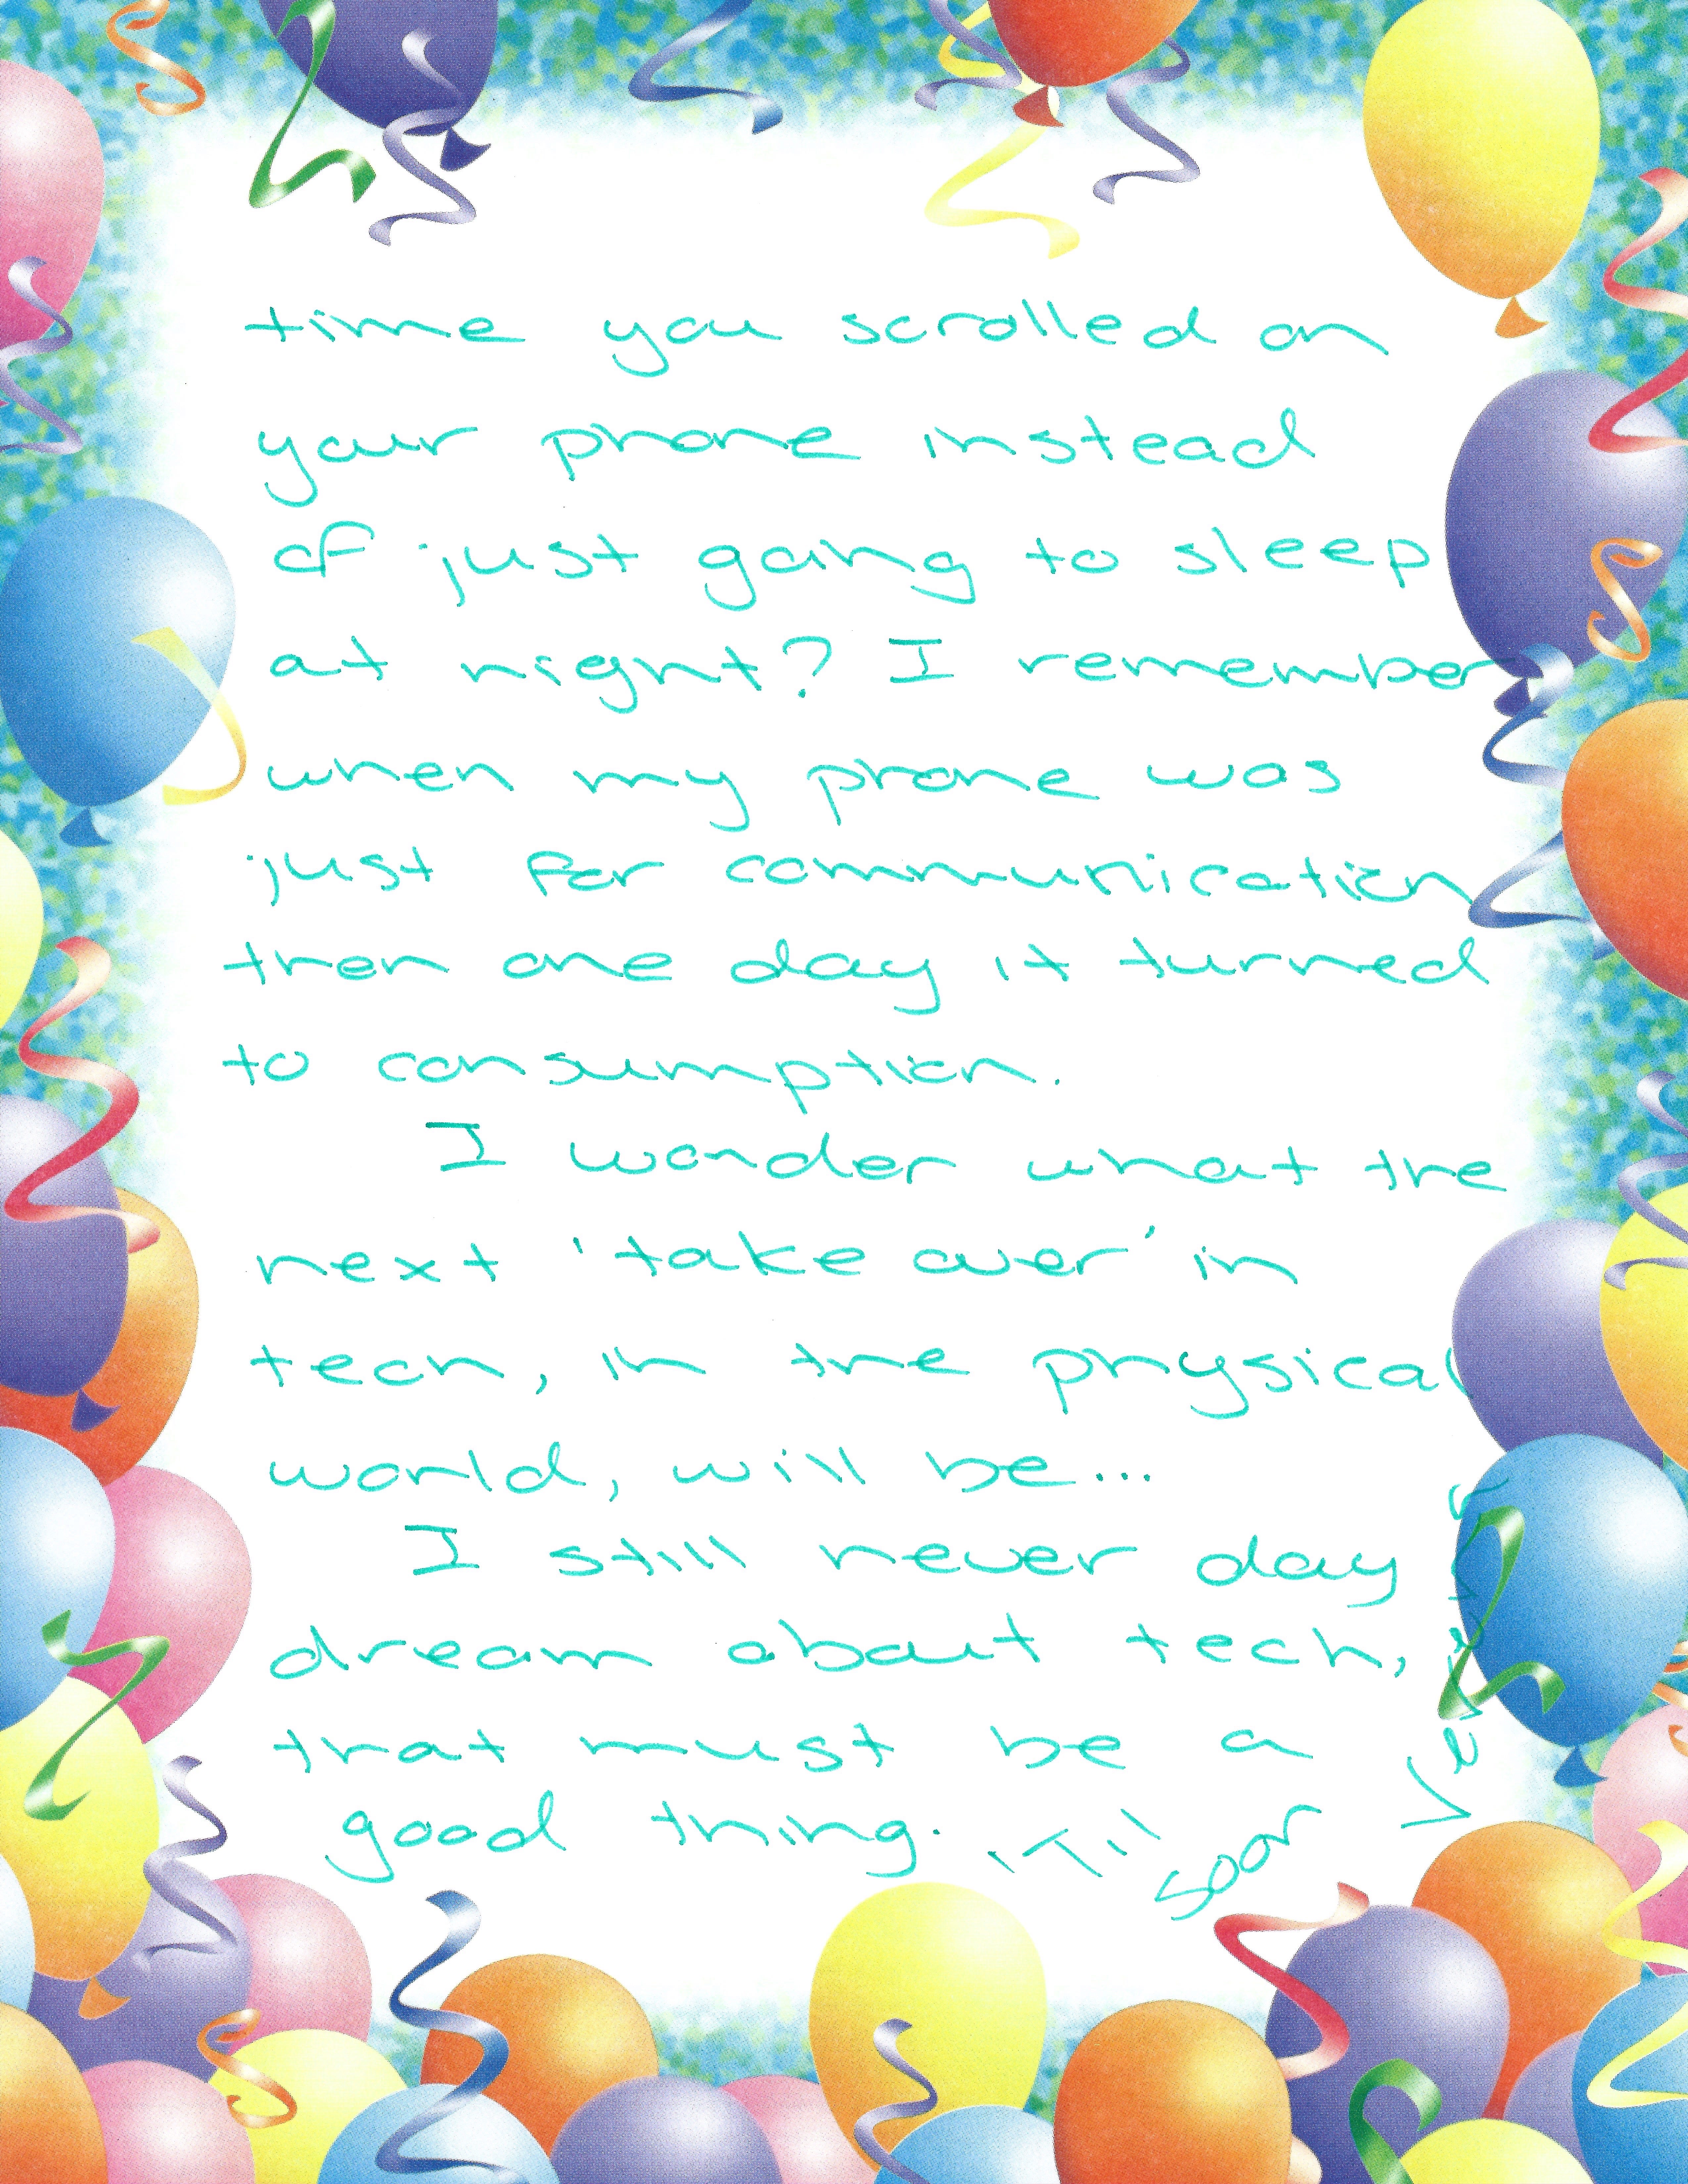 time you scrolled on
your phone instead
of just going to sleep
at night? I remember
when my phone was
just for communication
then one day it turned
to consumption.
I wonder what the
next 'take over' in
tech, in the physical
world, will be...
I still never day
dream about tech,
that must be a
good thing. 'Til
soon